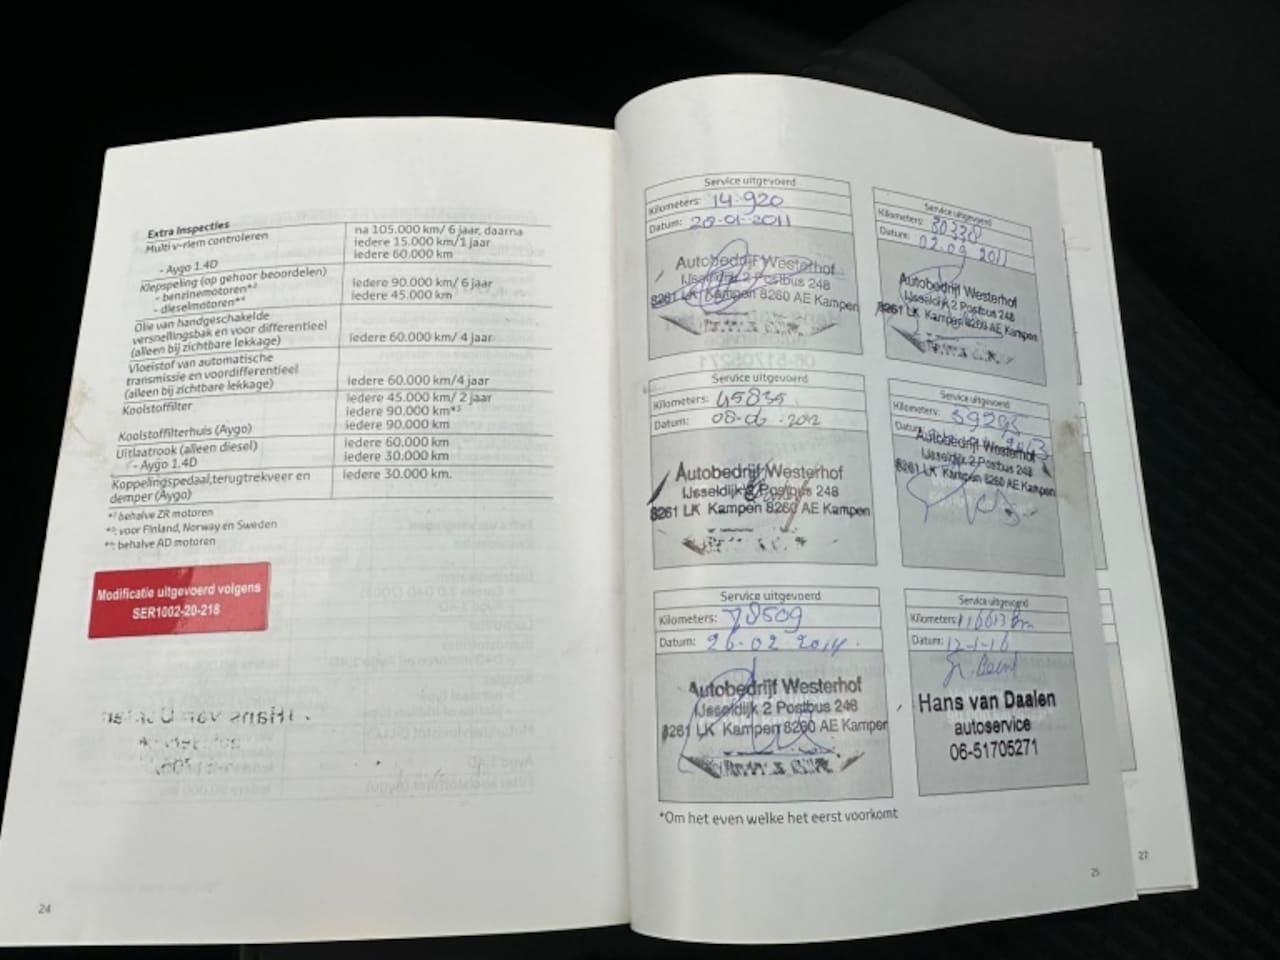 Extra Inspecties
Multi v-riem controleren
na 105.000 km/ 6 jaar, daarna
iedere 15.000 km/1 jaar
- Aygo 1.4D
iedere 60.000 km
Klepspeling (op gehoor beoordelen)
- benzinemotoren*²
iedere 90.000 km/ 6 jaar
- dieselmotoren*⁴
iedere 45.000 km
Olie van handgeschakelde
versnellingsbak en voor differentieel
(alleen bij zichtbare lekkage)
iedere 60.000 km/ 4 jaar
Vloeistof van automatische
transmissie en voordifferentieel
(alleen bij zichtbare lekkage)
iedere 60.000 km/4 jaar
Koolstoffilter
iedere 45.000 km/ 2 jaar
iedere 90.000 km*³
Koolstoffilterhuis (Aygo)
iedere 90.000 km
Uitlaatrook (alleen diesel)
iedere 60.000 km
- Aygo 1.4D
iedere 30.000 km
Koppelingspedaal,terugtrekveer en
demper (Aygo)
iedere 30.000 km.
*² behalve ZR motoren
*³: voor Finland, Norway en Sweden
*⁴: behalve AD motoren
Modificatie uitgevoerd volgens
SER1002-20-218
24
Service uitgevoerd
Kilometers: 14.920
Datum: 20-01-2011
Autobedrijf Westerhof
IJsseldijk 2 Postbus 248
8261 LK Kampen 8260 AE Kampen
Service uitgevoerd
Kilometers: 30330
Datum: 02.09.2011
Autobedrijf Westerhof
IJsseldijk 2 Postbus 248
8261 LK Kampen 8260 AE Kampen
Service uitgevoerd
Kilometers: 45835
Datum: 08-06-2012
Autobedrijf Westerhof
IJsseldijk 2 Postbus 248
8261 LK Kampen 8260 AE Kampen
Service uitgevoerd
Kilometers: 59295
Datum: 2013
Autobedrijf Westerhof
IJsseldijk 2 Postbus 248
8261 LK Kampen 8260 AE Kampen
Service uitgevoerd
Kilometers: 78509
Datum: 26-02-2014.
Autobedrijf Westerhof
IJsseldijk 2 Postbus 248
8261 LK Kampen 8260 AE Kampen
Service uitgevoerd
Kilometers: 116613 km
Datum: 12-1-16
Hans van Daalen
autoservice
06-51705271
*Om het even welke het eerst voorkomt
25
27